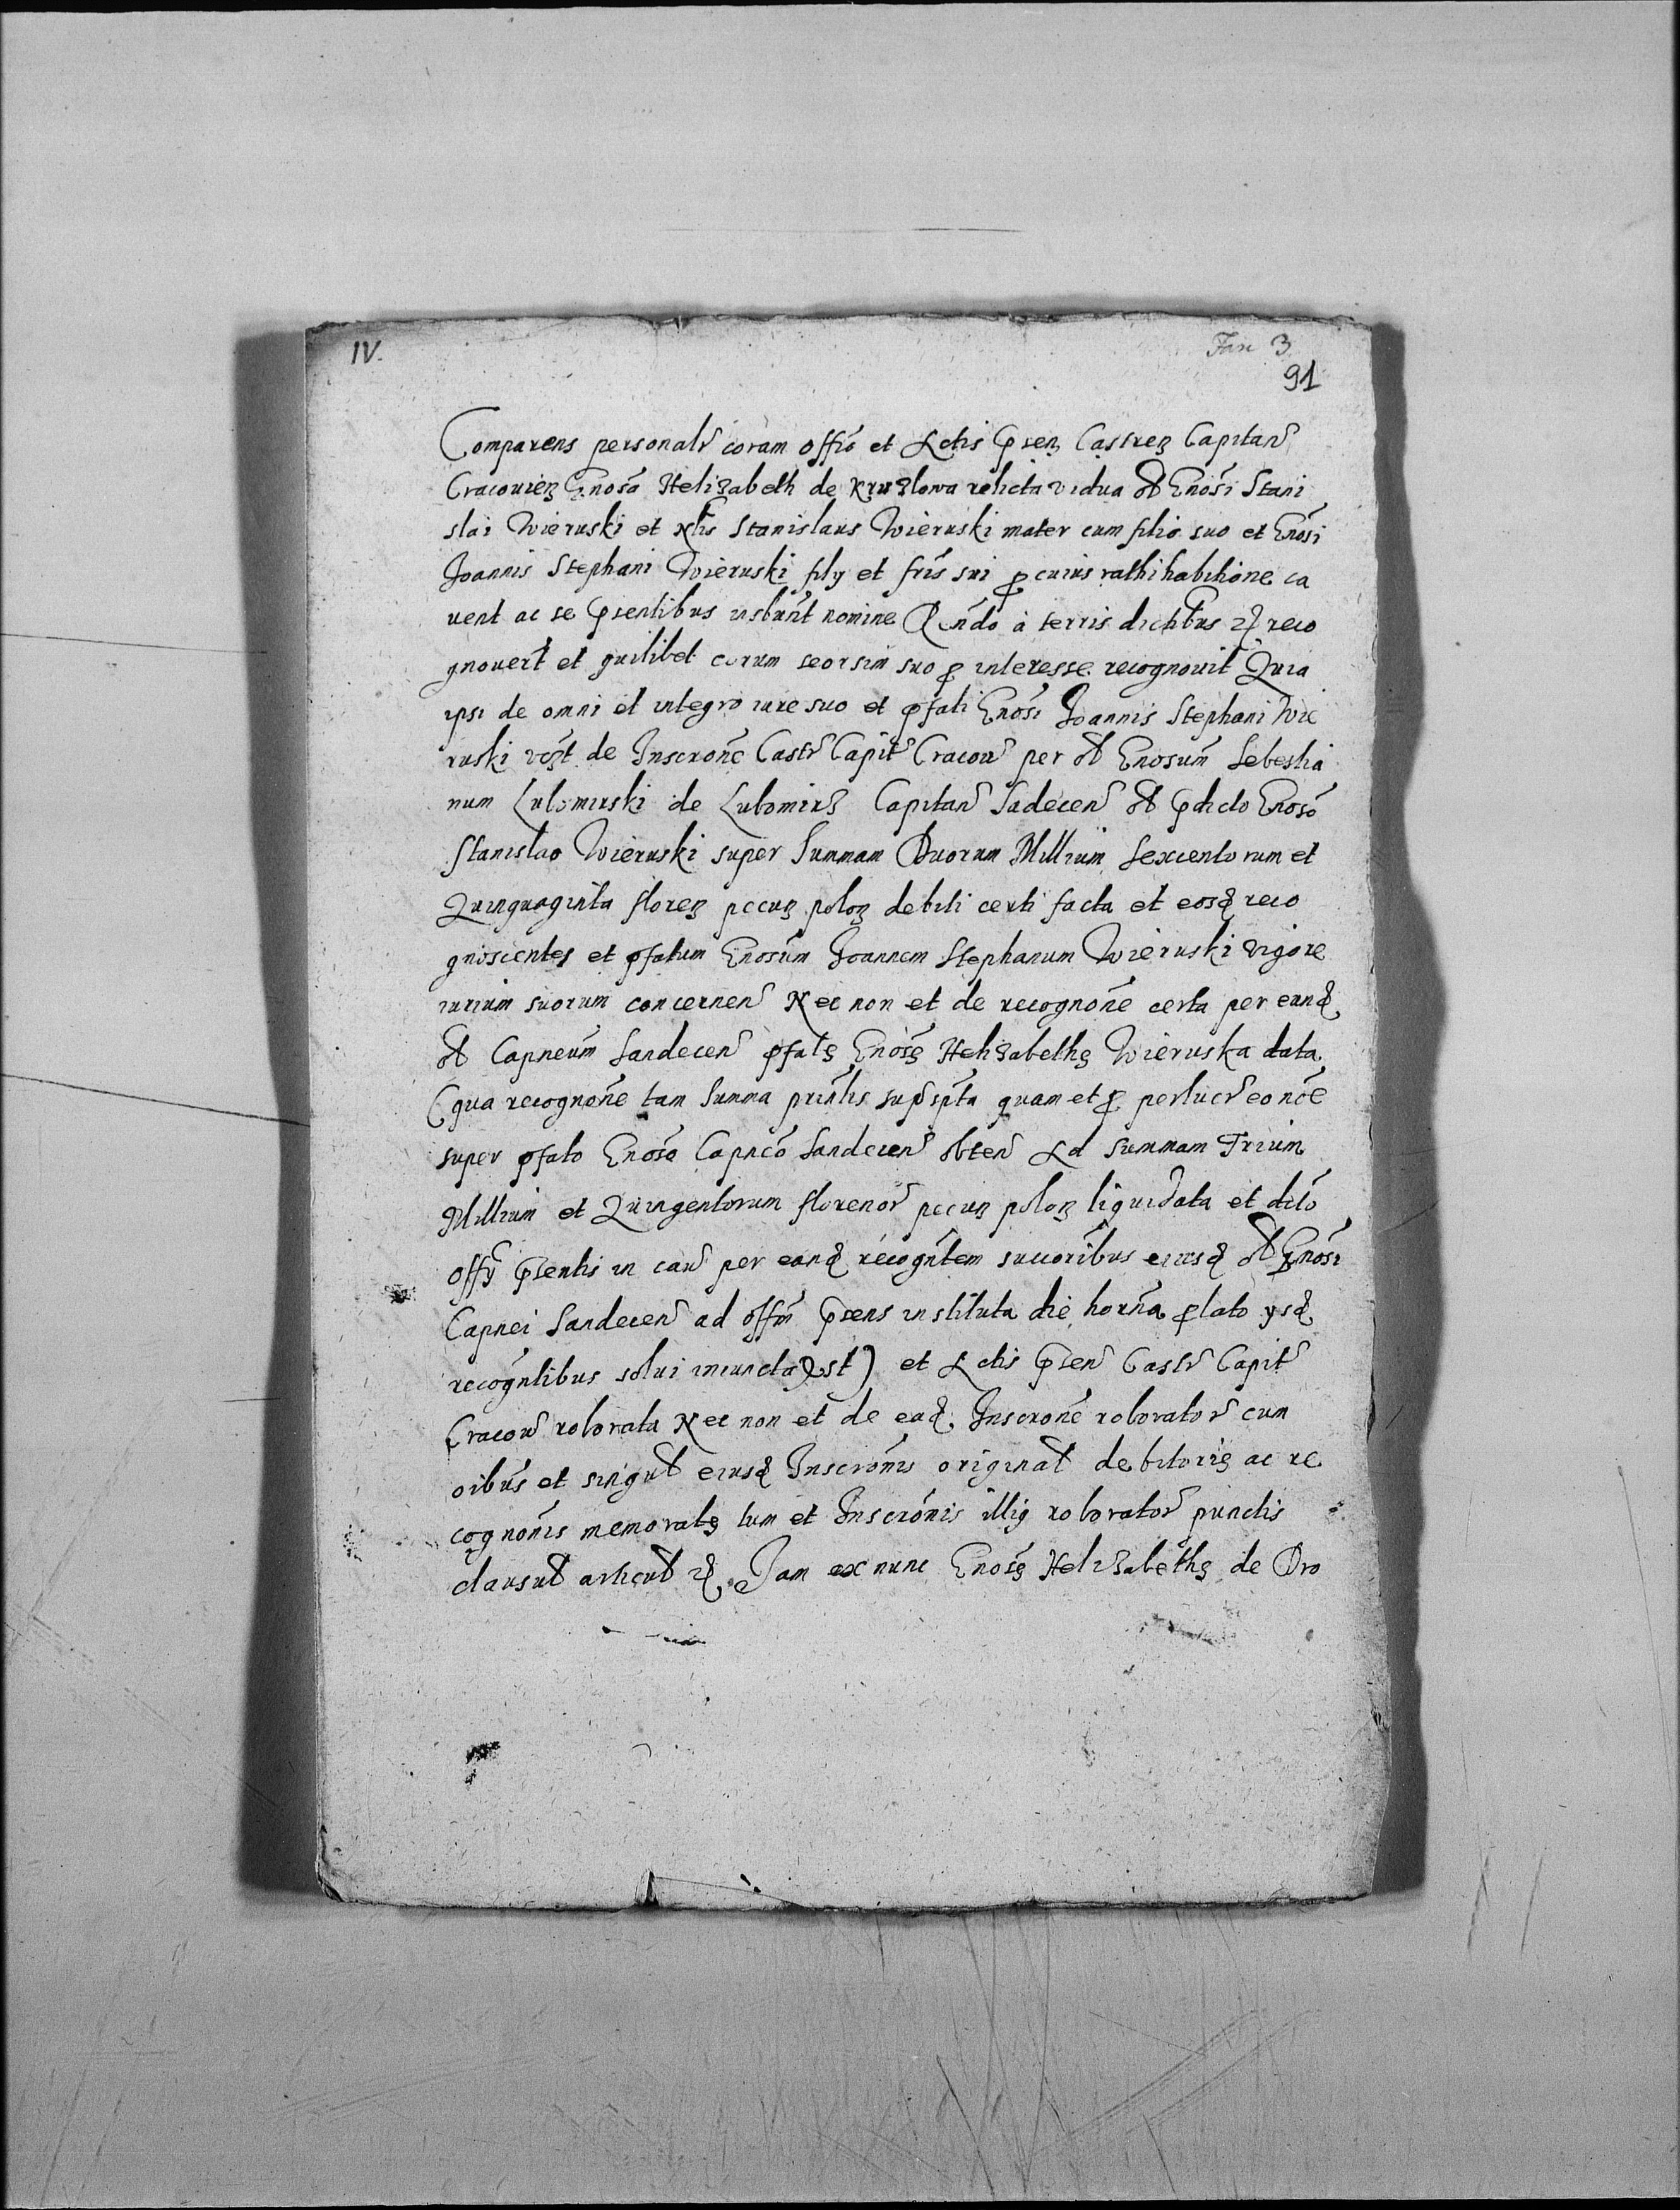 IV.
Jan 3
91
Comparens personalr coram offio et Actis Prsen Castren Capitan
Cracouien Gnosa Helizabeth de Kruzlowa relicta vidua ol Gnosi Stani
slai Wieruski et Nlis Stanislaus Wieruski mater cum filio suo et Gnosi
Joannis Stephani Wieruski fily et fris sui p cuius rathihabitione ca
uent ac se psentibus insbunt nomine à terris dictibus reco
gnouert et quilibet eorum seorsim suo p interesse recognouit Quia
ipsi de omni et integro iure suo et pfati Gnosi Joannis Stephani Wie
ruski de Inscrone Castr Capit Cracou per ol Gnosum Sebestia
num Lubomirski de Lubomirz Capitan Sadecen ol pdicto Gnoso
Stanislao Wieruski super Summam Duorum Millium Sexcentorum et
Quinquaginta floren pecun polon debiti certi facta et eosq reco
gnoscentes et pfatum Gnosum Joannem Stephanum Wieruski vigore
iurium suorum concernen Nec non et de recognone certa per eunq
ol Capneum Sandecen pfatę Gnosę Helizabethę Wieruska data
(qua recognone tam Summa prinlis supscpta quam et p perlucr eo noe
super pfato Gnoso Capneo Sandecen obten Ad Summam Trium
Millium et Quingentorum florenor pecun polon liquidata et dicto
offy psentis in cau per eanq recogntem succoribus eiusq ol Gnosi
Capnei Sandecen ad offm psens instituta die horna plato ysq
recogntibus solui iniuncta est) et Actis psen Castr Capit
Cracou roborata Nec non et de eaq Inscrone roborator cum
oibus et singul eiusq Inscronis original debitorię ac re
cognonis memoratę tum et Inscronis illig roborator punctis
clausul articul Jam ex nunc Gnosę Helizabethę de Dro